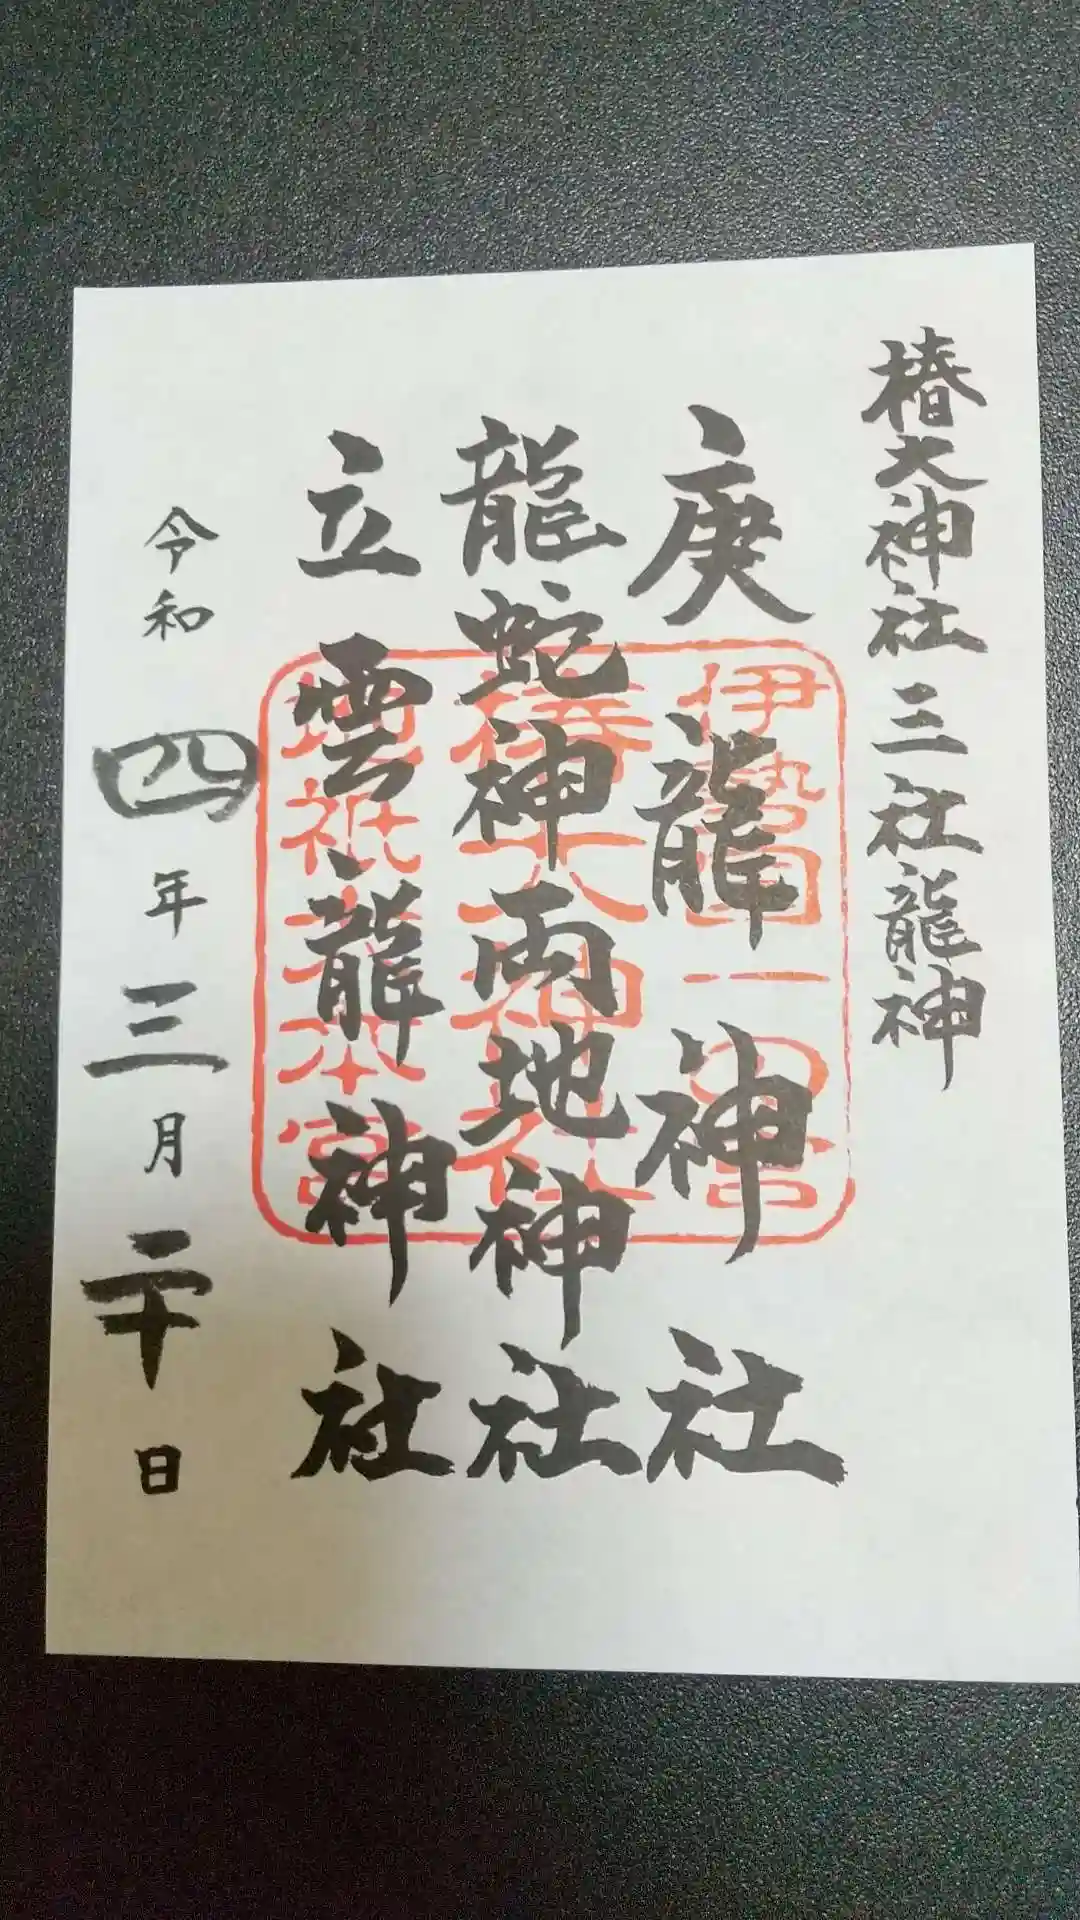 椿大神社 三社龍神
庚龍神社
龍蛇神両地神社
立雲龍神社
令和四年三月二十日
伊勢国一の宮
椿大神社
地祇大本宮